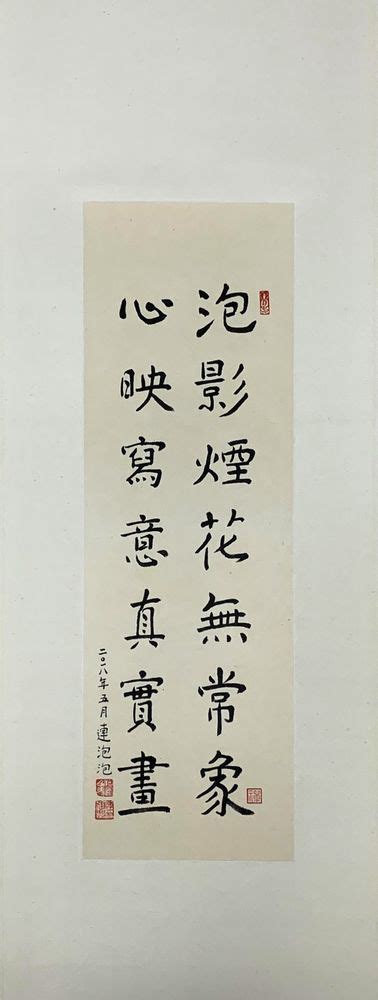 泡影煙花無常象
心映寫意真實畫
二〇一八年五月 連泡泡